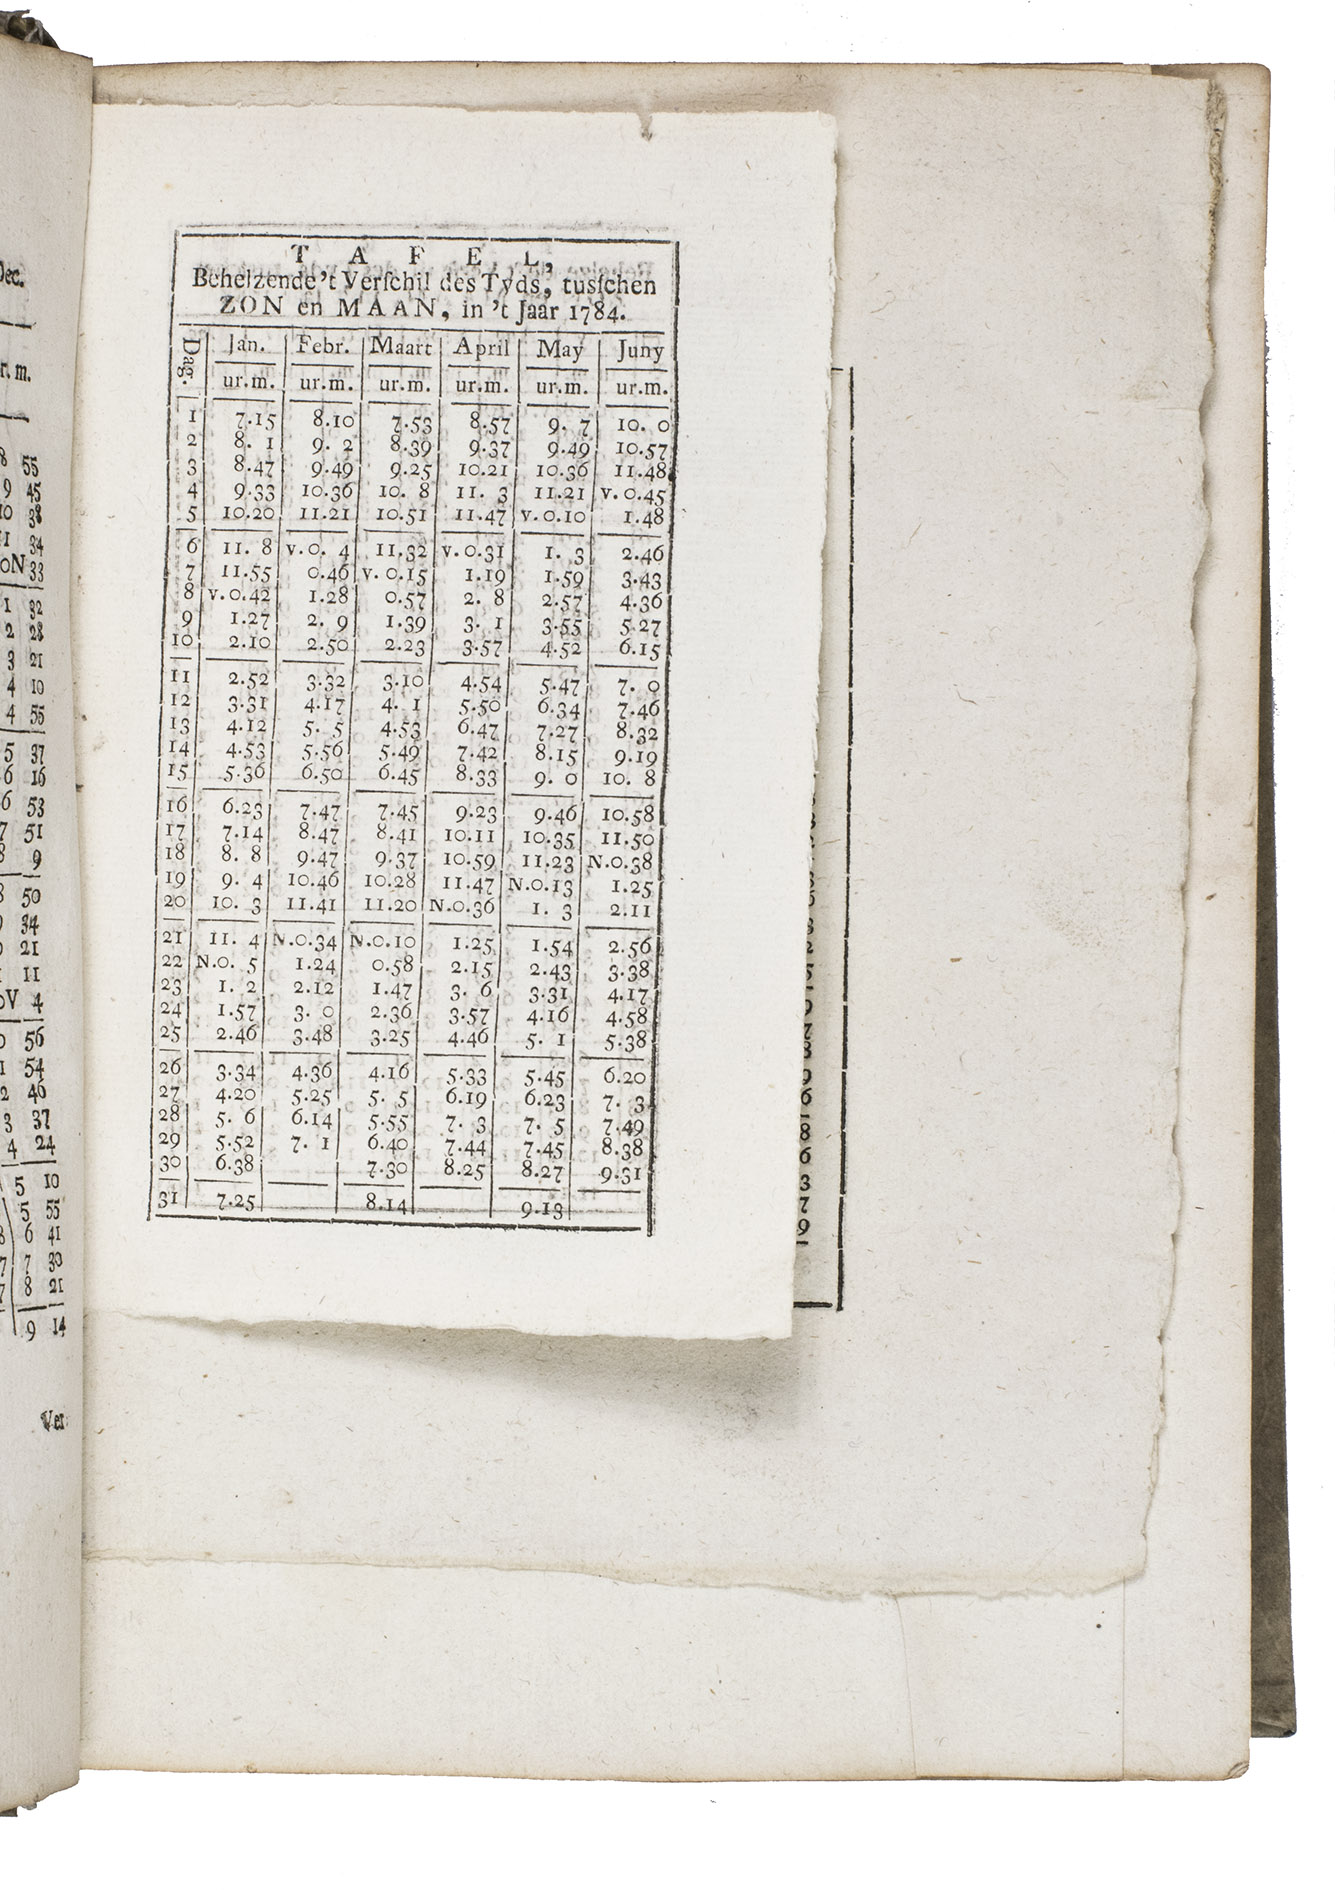 TAFEL,
Behelzende 't Verſchil des Tyds, tusſchen
ZON en MAAN, in 't Jaar 1784.
Dag. Jan. Febr. Maart April May Juny
ur.m. ur.m. ur.m. ur.m. ur.m. ur.m.
1 7.15 8.10 7.53 8.57 9. 7 10. 0
2 8. 1 9. 2 8.39 9.37 9.49 10.57
3 8.47 9.49 9.25 10.21 10.36 11.48
4 9.33 10.36 10. 8 11. 3 11.21 V. 0.45
5 10.20 11.21 10.51 11.47 V. 0.10 1.48
6 11. 8 V. 0. 4 11.32 V. 0.31 1. 3 2.46
7 11.55 0.46 V. 0.15 1.19 1.59 3.43
8 V. 0.42 1.28 0.57 2. 8 2.57 4.36
9 1.27 2. 9 1.39 3. 1 3.55 5.27
10 2.10 2.50 2.23 3.57 4.52 6.15
11 2.52 3.32 3.10 4.54 5.47 7. 0
12 3.31 4.17 4. 1 5.50 6.34 7.46
13 4.12 5. 5 4.53 6.47 7.27 8.32
14 4.53 5.56 5.49 7.42 8.15 9.19
15 5.36 6.50 6.45 8.33 9. 0 10. 8
16 6.23 7.47 7.45 9.23 9.46 10.58
17 7.14 8.47 8.41 10.11 10.35 11.50
18 8. 8 9.47 9.37 10.59 11.23 N.0.38
19 9. 4 10.46 10.28 11.47 N.0.13 1.25
20 10. 3 11.41 11.20 N.0.36 1. 3 2.11
21 11. 4 N.0.34 N.0.10 1.25 1.54 2.56
22 N.0. 5 1.24 0.58 2.15 2.43 3.38
23 1. 2 2.12 1.47 3. 6 3.31 4.17
24 1.57 3. 0 2.36 3.57 4.16 4.58
25 2.46 3.48 3.25 4.46 5. 1 5.38
26 3.34 4.36 4.16 5.33 5.45 6.20
27 4.20 5.25 5. 5 6.19 6.23 7. 3
28 5. 6 6.14 5.55 7. 3 7. 5 7.49
29 5.52 7. 1 6.40 7.44 7.45 8.38
30 6.38 7.30 8.25 8.27 9.31
31 7.25 8.14 9.13